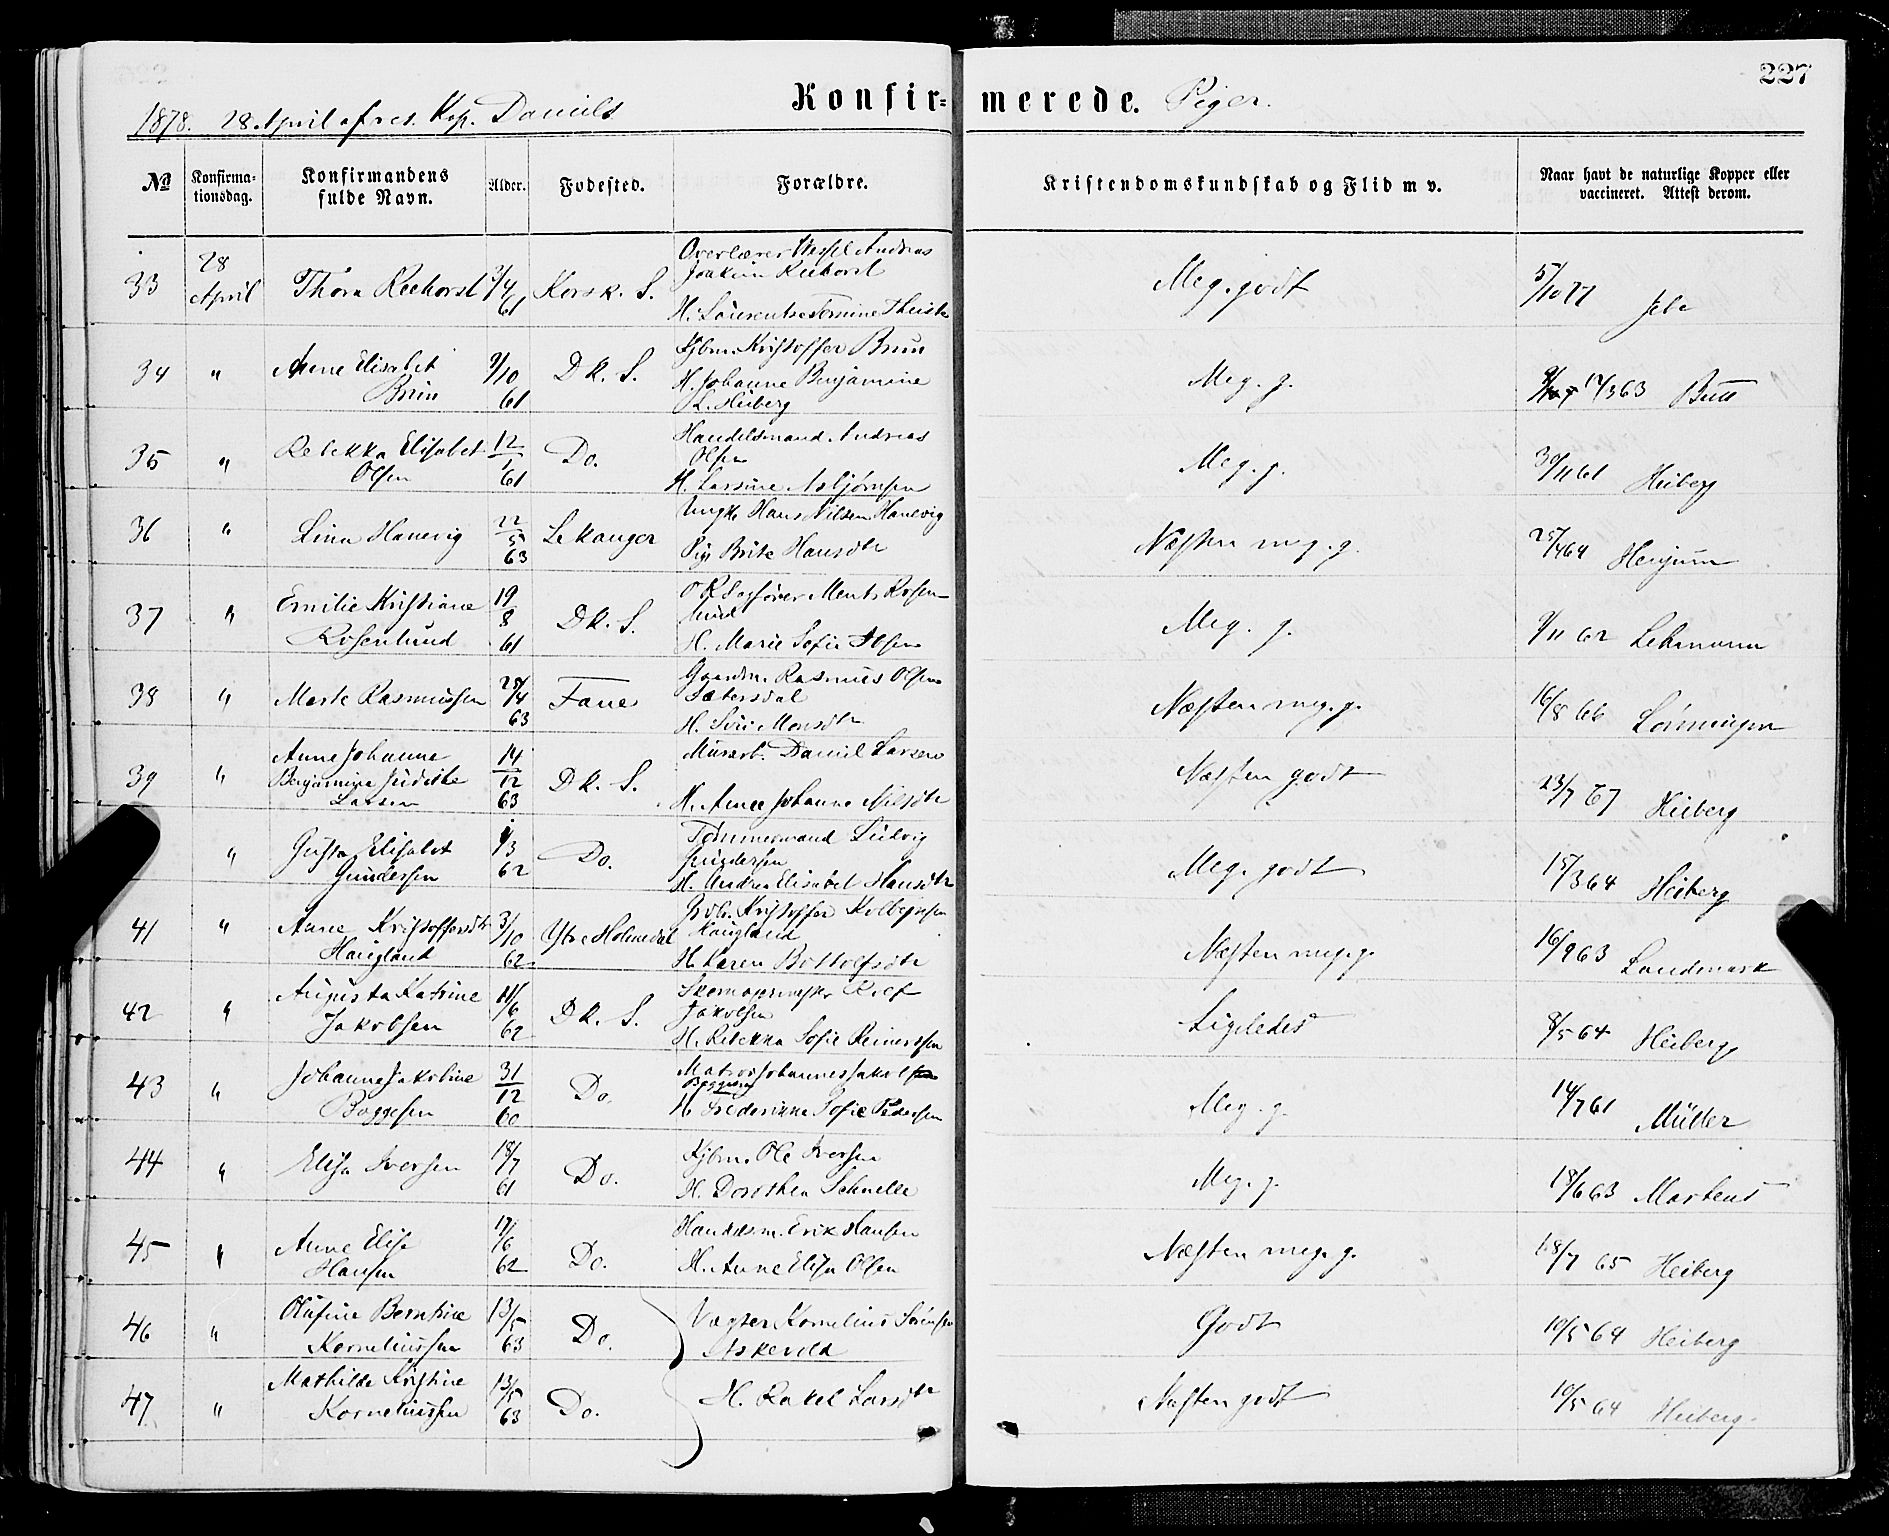 227
Konfir- merede. Piger.
1878. 28. April af res. Kap. Daniels
№ Konfirma-tionsdag. Konfirmandens fulde Navn. Alder. Fødested. Forældre. Kristendomskundskab og Flid m v. Naar havt de naturlige Kopper eller vaccineret. Attest derom.
33 28 April Thora Reehorst 3/4 61 Korsk. S. Overlærer Wessel Andreas Joakim Reehorst Meg. godt 5/10 77
H. Laurentse
34 " Anne Elisabet Brun 9/10 61 Dk. S. Kjbm. Kristoffer Brun H. Johanne Benjamine Heiberg Meg. g. 17/3 63 Bull
35 " Rebekka Elisabet Olsen 12/1 61 Do. Handelsmand Andreas Olsen H. Larsine Asbjørnsen Meg. g. 30/11 61 Heiberg
36 " Lina Hanevig 22/5 63 Lekanger Ungk. Hans Nilsen Hanevig Pig. Brite Hansdtr Næsten meg. g. 25/4 64 Henjum
37 " Emilie Kristiane Rosenlund 19/8 61 Dk. S. Ments Rosenlund H. Marie Sofie Meg. g. 9/11 62 Lehmann
38 " Marte Rasmussen 25/4 63 Fane Gaardm. Rasmus Olsen Sætersdal H. Siri Monsdtr Næsten meg. g. 16/8 66 Lønningen
39 " Anne Johanne Benjamine Judithe Larsen 14/12 63 Dk. S. Murarb. Daniel Larsen H. Anne Johanne Nilsdtr Næsten godt 23/7 67 Heiberg
" Gusta Elisabet Gundersen 1/3 62 Do. Tømmermand Ludvig Gundersen H. Andrea Elisabet Hansdtr Meg. godt 15/3 64 Heiberg
41 " Anne Kristoffersdtr Haugland 3/10 62 Ytre Holmedal Gdbr. Kristoffer Kolbejnsen Haugland H. Karen Bottolfsdtr Næsten meg. g. 16/9 63 Landmark
42 " Augusta Katrine Jakobsen 11/6 62 Dk. S. Skomagermester Jakobsen H. Rebekka Sofie Reinertsen Ligeledes 8/5 64 Heiberg
43 " Johanne Jakobine Boggesen 31/12 60 Do. Matros Johannes Jakob Boggesen H. Frederikke Sofie Pedersen Meg. g. 14/7 61 Müller
44 " Elisa Iversen 18/7 61 Do. Kjbm. Ole Iversen H. Dorothea Schnelle Meg. g. 18/6 63 Martens
45 " Anne Elise Hansen 17/6 62 Do. Handelsm. Erik Hansen H. Anne Elisa Olsen Næsten meg. g. 18/7 65 Heiberg
46 " Olufine Berntine Korneliussen 13/5 63 Do. Vægter Kornelius Sørensen Askevold Godt 10/5 64 Heiberg
47 " Mathilde Kristine Korneliussen 13/5 63 Do. H. Rakel Larsdtr Næsten godt 10/5 64 Heiberg.